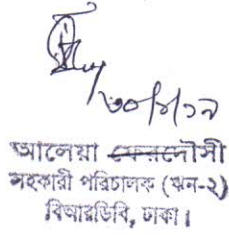 ৩০/৪/১৯
আলেয়া ফেরদৌসী
সহকারী পরিচালক (ঋন-২)
বিআরডিবি, ঢাকা।